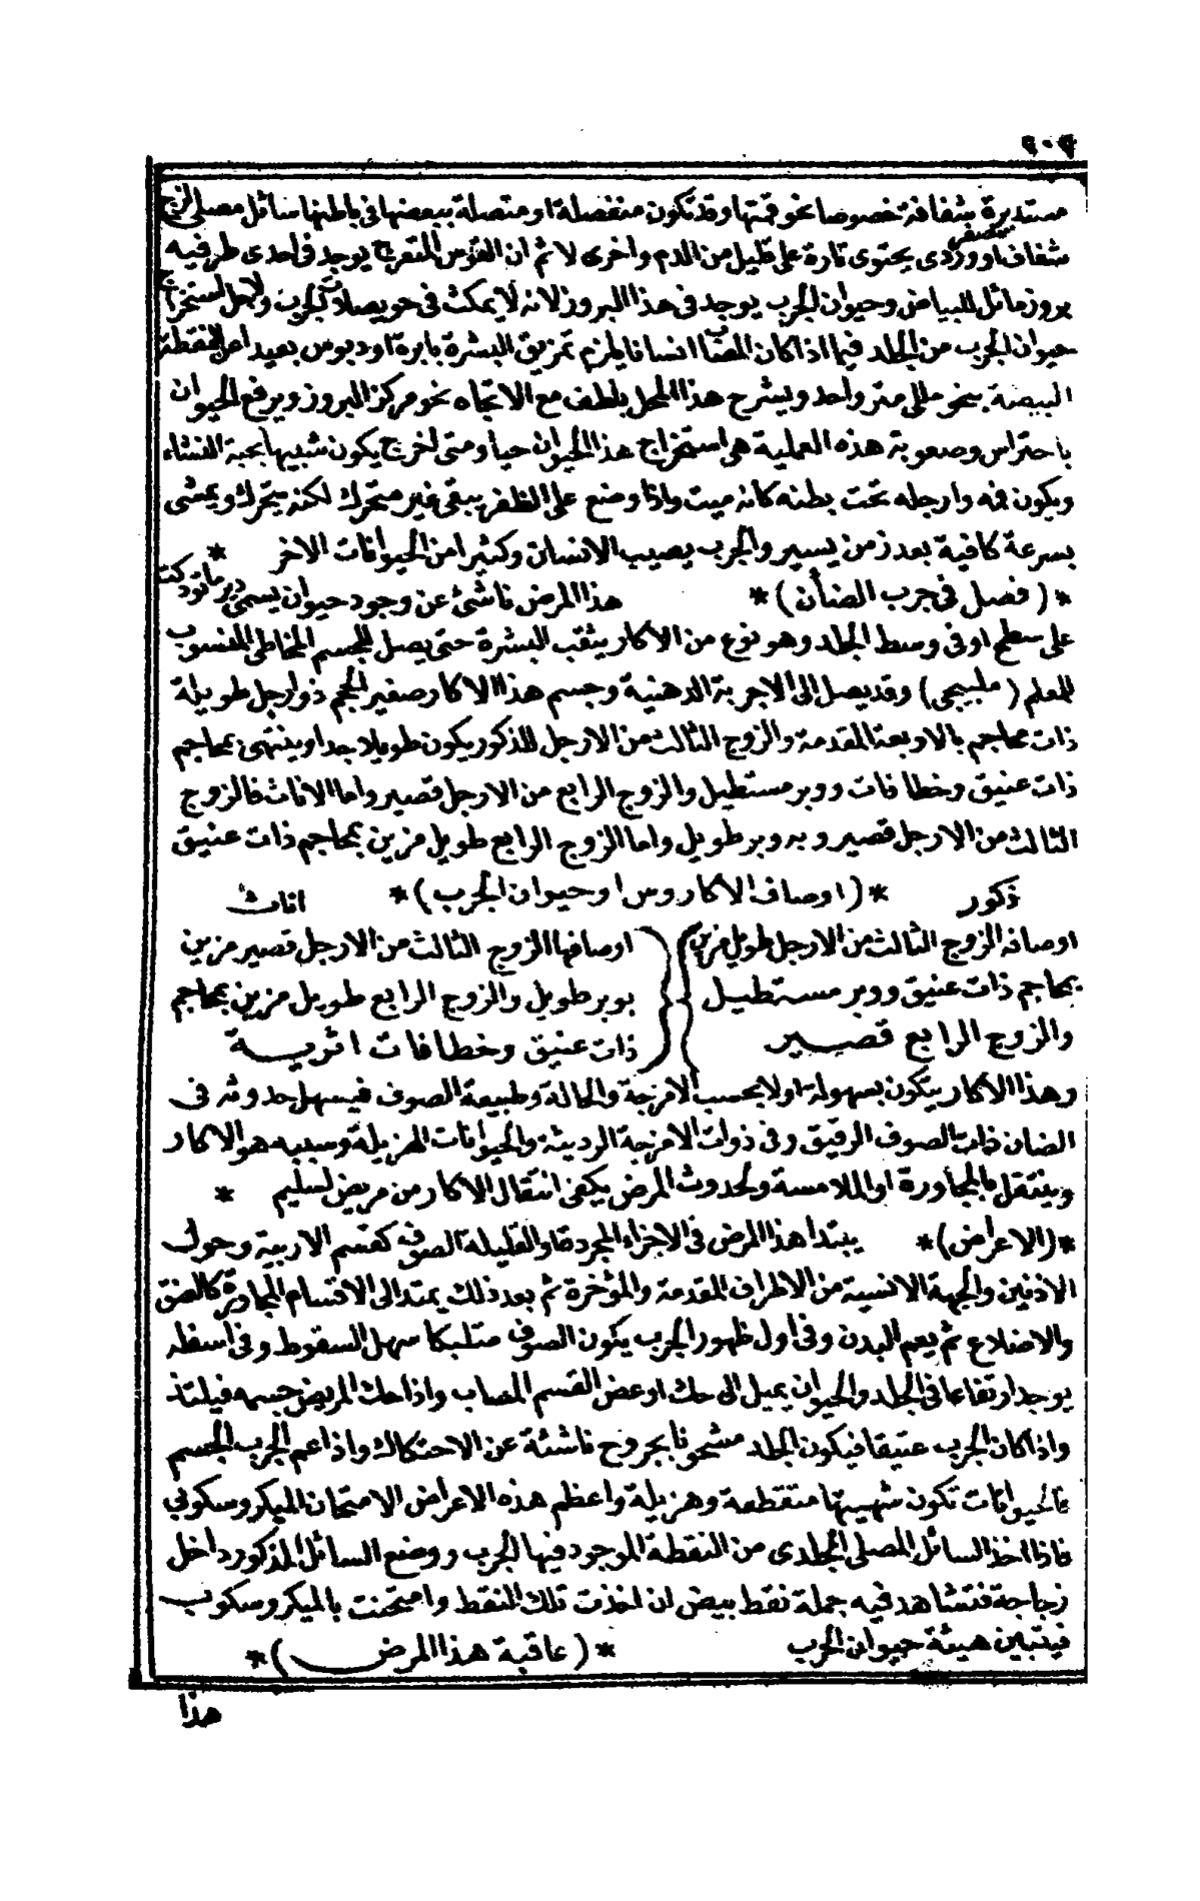 مستديرة شفافة خصوصا نحو قمتها وقد تكون منفصلة او متصلة ببعضها في باطنها سائل مصلي لزج
شفاف او وردى يحتوى تارة على قليل من الدم واخرى لا ثم ان القوس المتعرج يوجد في احدى طرفيه
بروز مائل للبياض وحيوان الجرب يوجد في هذا البروز لانه لا يمكث في حويصلات الجرب ولاجل استخراج
حيوان الجرب من الجلد فيما اذا كان المصاب انسانا يلزم تمزيق البشرة بابرة او دبوس بعيدا عن النقطة
البيضة بنحو مللى متر واحد ويشرح هذا المحل بلطف مع الاتجاه نحو مركز البروز ويرفع الحيوان
باحتراس وصعوبة هذه العملية هى استخراج هذا الحيوان حيا ومتى اخرج يكون شبيها بحبة النشاء
ويكون فمه وارجله تحت بطنه كانه ميت واذا وضع على الظفر يبقى غير متحرك لكنه يتحرك ويمشى
بسرعة كافية بعد زمن يسير والجرب يصيب الانسان وكثيرا من الحيوانات الاخر *
*( فصل في جرب الضأن )* هذا المرض ناشئ عن وجود حيوان يسمى
على سطح او في وسط الجلد وهو نوع من الاكار يثقب البشرة حتى يصل للجسم المخاطى المنسوب
للمعلم ( ملبيجى ) وقد يصل الى الاجربة الدهنية وجسم هذا الاكار صغير الحجم ذو ارجل طويلة
ذات محاجم بالاربعة المقدمة والزوج الثالث من الارجل المذكور يكون طويلا جدا وينتهى بمحاجم
ذات عنيق وخطافات ووبر مستطيل والزوج الرابع من الارجل قصير واما الاناث فالزوج
الثالث من الارجل قصير وبه وبر طويل واما الزوج الرابع طويل مزين بمحاجم ذات عنيق
ذكور *( اوصاف الاكاروس او حيوان الجرب )* اناث
اوصافه الزوج الثالث من الارجل طويل مزين
بمحاجم ذات عنيق ووبر مستطيل
والزوج الرابع قصير
اوصافها الزوج الثالث من الارجل قصير مزين
بوبر طويل والزوج الرابع طويل مزين بمحاجم
ذات عنيق وخطافات اثرية
وهذا الاكار يتكون بسهولة اولا بحسب الامزجة والحالة وطبيعة الصوف فيسهل حدوثه في
الضان ذات الصوف الرقيق وفي ذوات الامزجة الرديئة والحيوانات الهزيلة وسببه هو الاكار
وينتقل بالمجاورة او الملامسة ولحدوث المرض يكفى انتقال الاكار من مريض لسليم *
*( الاعراض )* يبتدا هذا المرض في الاجزاء المجردة او القليلة الصوف كقسم الاربية وحول
الاذنين والجهة الانسية من الاطراف المقدمة والمؤخرة ثم بعد ذلك يمتد الى الاقسام المجاورة كالعنق
والاضلاع ثم يعم البدن وفي اول ظهور الجرب يكون الصوف متلبكا سهل السقوط وفي اسفله
يوجد ارتفاعا في الجلد والحيوان يميل الى حك او عض القسم المصاب واذا حك المريض جسمه فيلتذ
واذا كان الجرب عتيقا فيكون الجلد مشحونا بجروح ناشئة عن الاحتكاك واذا عم الجرب الجسم
فالحيوانات تكون شهيتها منقطعة وهزيلة واعظم هذه الاعراض الامتحان الميكروسكوبي
فاذا اخذ السائل المصلى الجلدى من النقطة الموجود فيها الجرب ووضع السائل المذكور داخل
زجاجة فتشاهد فيه جملة نقط بيض ان اخذت تلك النقط وامتحنت بالميكروسكوب
فيتبين هيئة حيوان الجرب *( عاقبة هذا المرض )*
هذا